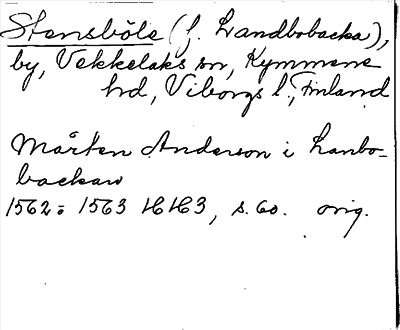 Stensböle (f. Landbobacka),
by, Vekkelaks sn, Kymmene
hd, Viborgs l., Finland
Mårten Anderson i Lanbo-
backan
1562-1563 H H3, s. 60. orig.